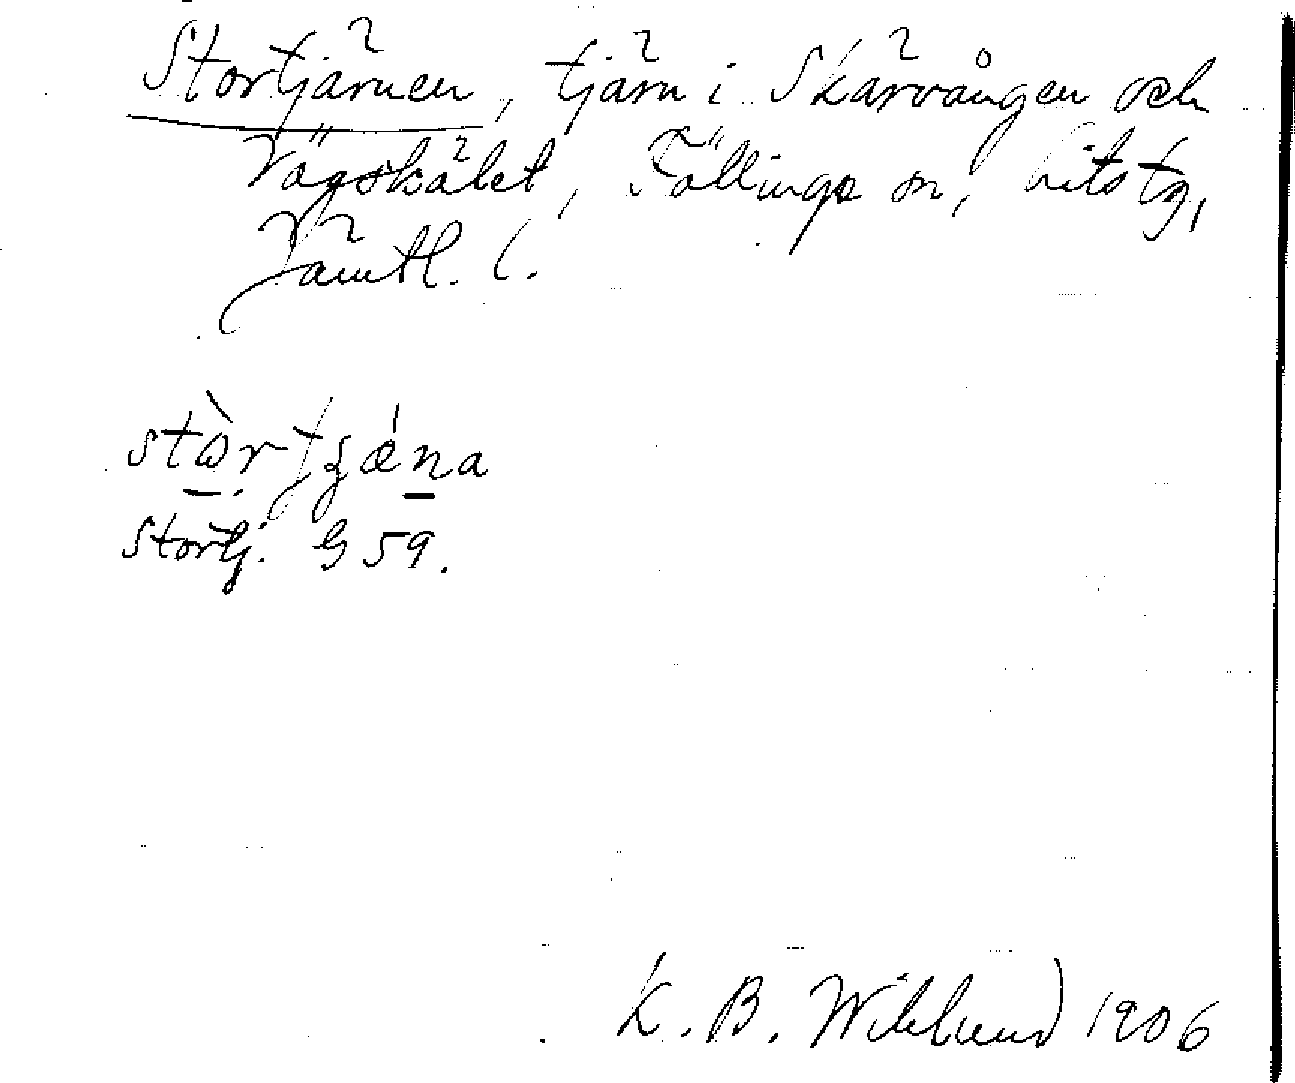 Stortjärnen, tjärn i Skärvången och
Vågskälet, Föllinge sn, Lits tg,
Jämtl. l.
Stortj. G 59.
K. B. Wiklund 1906